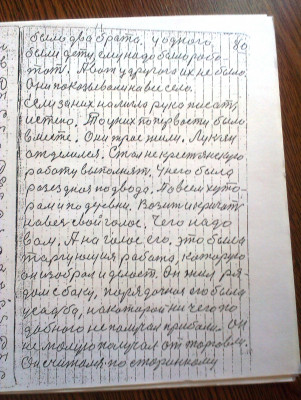 было два брата. У одного 80
были дети, ему надо было рабо-
тат. А вот у другого их не было.
Они показывали на все село.
Если за них налигла руко писать
истено. То у них по первости было
вместе. Они трое жили. Лукьян
отделился. Стал не крестьянскую
работу выполнят. У него была
разездная подвода. По всем хуто-
рам и по деревни. Возит и кричат
на весь свой голос. Чего надо
вам. А на голос его, это была
таргующия работа, которую
он избрал и делает. Он жил ря-
дом с баку, порядочная его была
усадба, на которой ничего по
добного не получал прибыли. Он
не малую получал от торговли.
Он считался по старинному